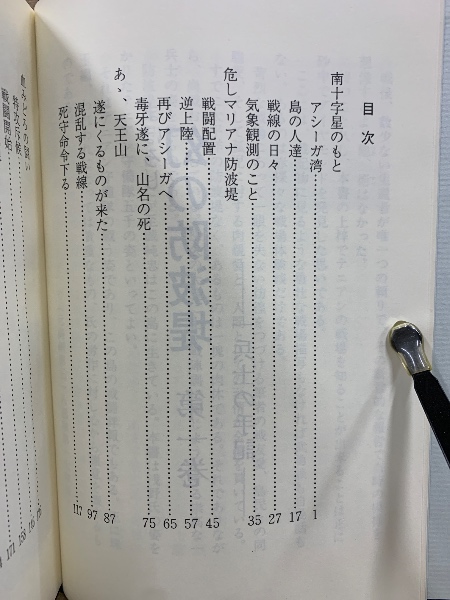 目次
南十字星のもと
アシーガ湾 1
島の人達 17
戦線の日々 27
気象観測のこと 35
危しマリアナ防波堤
戦闘配置 45
逆上陸 57
再びアシーガへ 65
毒牙遂に、山名の死 75
あゝ、天王山
遂にくるものが来た 87
混乱する戦線 97
死守命令下る 117
戦闘開始